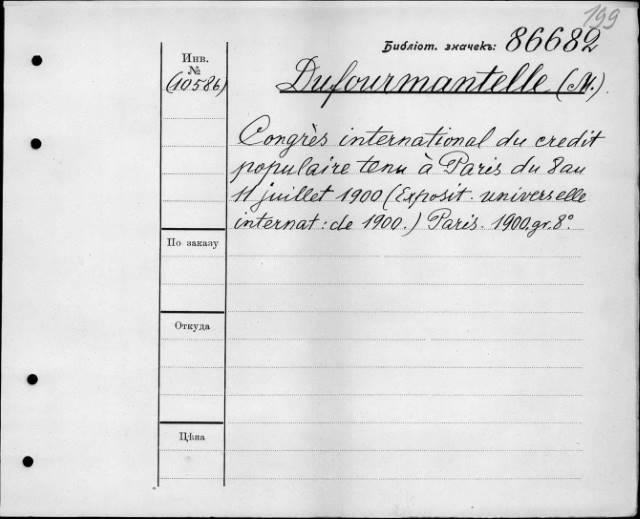 199
Библіот. значекъ: 86682
Инв.
№
(10586)
Dufourmantelle (M.).
Congrès international du credit
populaire tenu à Paris du 8 au
11 juillet 1900 (Exposit. universelle
internat: de 1900.) Paris. 1900. gr. 8°.
По заказу
Откуда
Цѣна